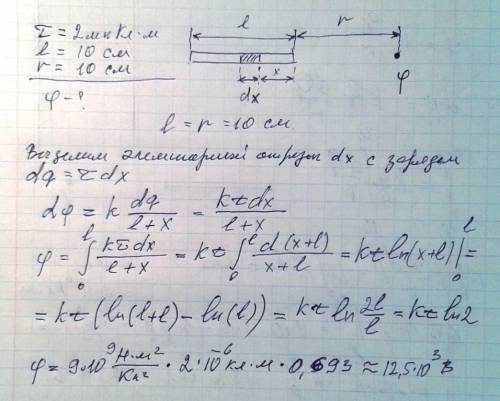 τ = 2мкКл·м
l = 10 см
r = 10 см
φ - ?
l
r
x
dx
φ
l = r = 10 см
Выделим элементарный отрезок dx с зарядом
dq = τ dx
dφ = k dq/(l+x) = kτdx/(l+x)
φ = ∫₀ˡ kτdx/(l+x) = kτ ∫₀ˡ d(x+l)/(x+l) = kτ ln(x+l)|₀ˡ =
= kτ (ln(l+l) - ln(l)) = kτ ln 2l/l = kτ ln2
φ = 9·10⁹ Н·м²/Кл² · 2·10⁻⁶ Кл·м · 0,693 ≈ 12,5·10³ В